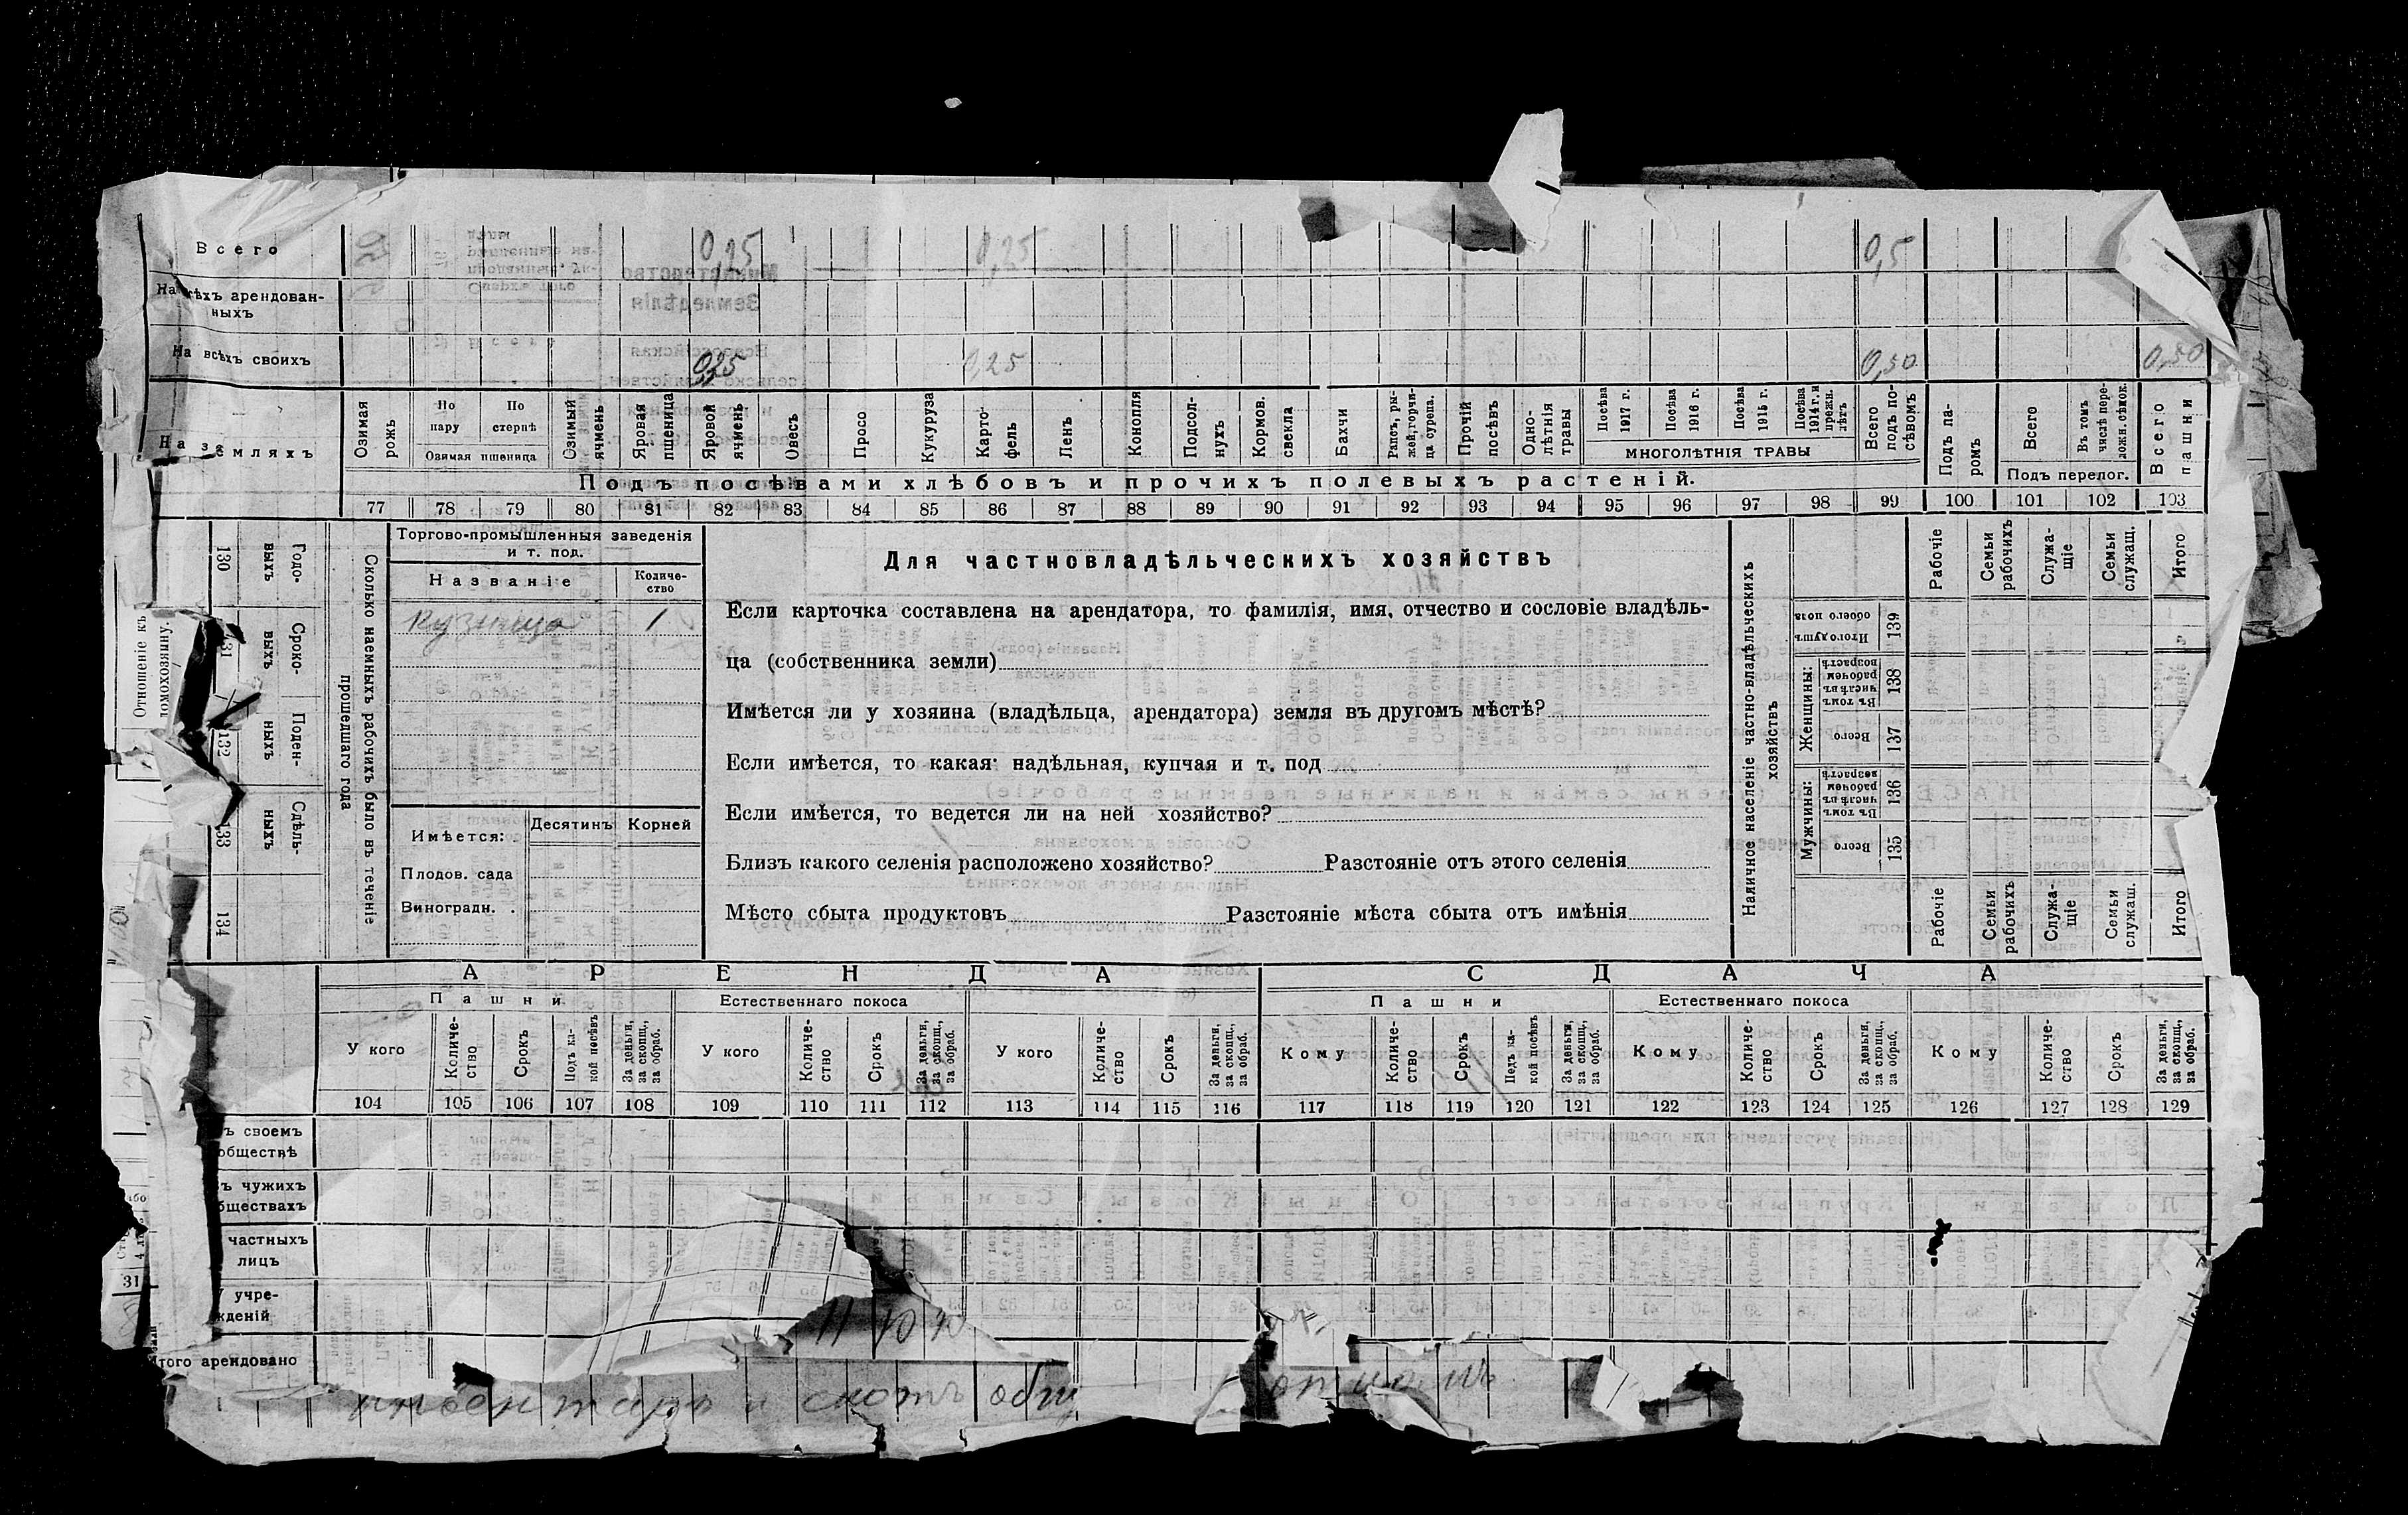 Всего 0,25 0,25 0,5
На всѣхъ арендован-
ныхъ
На всѣхъ своихъ 0,25 0,25 0,50 0,50
На земляхъ
Озимая рожь
По пару
По стернѣ
Озимая пшеница
Озимый ячмень
Яровая пшеница
Яровой ячмень
Овесъ
Просо
Кукуруза
Карто-
фель
Ленъ
Конопля
Подсол-
нухъ
Кормов.
свекла
Бахчи
Рапсъ, ры-
жей, горчи-
ца сурепа.
Прочій
посѣвъ
Одно-
лѣтнія
травы
Посѣва
1917 г.
Посѣва
1916 г.
Посѣва
1915 г.
Посѣва
1914 г. и
прежн.
лѣтъ
МНОГОЛѢТНІЯ ТРАВЫ
Всего
подъ по-
сѣвомъ
Подъ па-
ромъ
Всего
Въ томъ
числѣ пере-
ложн. сѣнок.
Подъ перелог.
Всего
пашни
Подъ посѣвами хлѣбовъ и прочихъ полевыхъ растеній.
77 78 79 80 81 82 83 84 85 86 87 88 89 90 91 92 93 94 95 96 97 98 99 100 101 102 103
Отношеніе къ
домохозяину.
130 131 132 133 134
Годо-
выхъ
Сроко-
выхъ
Поден-
ныхъ
Сдѣль-
ныхъ
Сколько наемныхъ рабочихъ было въ теченіе
прошедшаго года
Торгово-промышленныя заведенія
и т. под.
Названіе
Количе-
ство
Кузница 1
Имѣется: Десятинъ Корней
Плодов. сада
Виноградн. .
Для частновладѣльческихъ хозяйствъ
Если карточка составлена на арендатора, то фамилія, имя, отчество и сословіе владѣль-
ца (собственника земли)
Имѣется ли у хозяина (владѣльца, арендатора) земля въ другомъ мѣстѣ?
Если имѣется, то какая: надѣльная, купчая и т. под
Если имѣется, то ведется ли на ней хозяйство?
Близъ какого селенія расположено хозяйство? Разстояніе отъ этого селенія
Мѣсто сбыта продуктовъ Разстояніе мѣста сбыта отъ имѣнія
Наличное населеніе частно-владѣльческихъ
хозяйствъ
Рабочіе
Семьи
рабочихъ
Служа-
щіе
Семьи
служащ.
Итого
Итого душъ
обоего пола
139
Женщины:
Въ томъ
числѣ въ
рабочем
возрастѣ
138
Всего
137
Мужчины:
Въ томъ
числѣ въ
рабочем
возрастѣ
136
Всего
135
Рабочіе
Семьи
рабочихъ
Служа-
щіе
Семьи
служащ.
Итого
АРЕНДА СДАЧА
Пашни Естественнаго покоса Пашни Естественнаго покоса
У кого
Количе-
ство
Срокъ
Подъ ка-
кой посѣвъ
За деньги,
за скопщ.,
за обраб.
У кого
Количе-
ство
Срокъ
За деньги,
за скопщ.,
за обраб.
У кого
Количе-
ство
Срокъ
За деньги,
за скопщ.,
за обраб.
Кому
Количе-
ство
Срокъ
Подъ ка-
кой посѣвъ
За деньги,
за скопщ.,
за обраб.
Кому
Количе-
ство
Срокъ
За деньги,
за скопщ.,
за обраб.
Кому
Количе-
ство
Срокъ
За деньги,
за скопщ.,
за обраб.
104 105 106 107 108 109 110 111 112 113 114 115 116 117 118 119 120 121 122 123 124 125 126 127 128 129
ъ своемъ
обществѣ
ъ чужихъ
бществахъ
частныхъ
лицъ
У учре-
жденій
31
Итого арендовано
инвентарь и скотъ общ